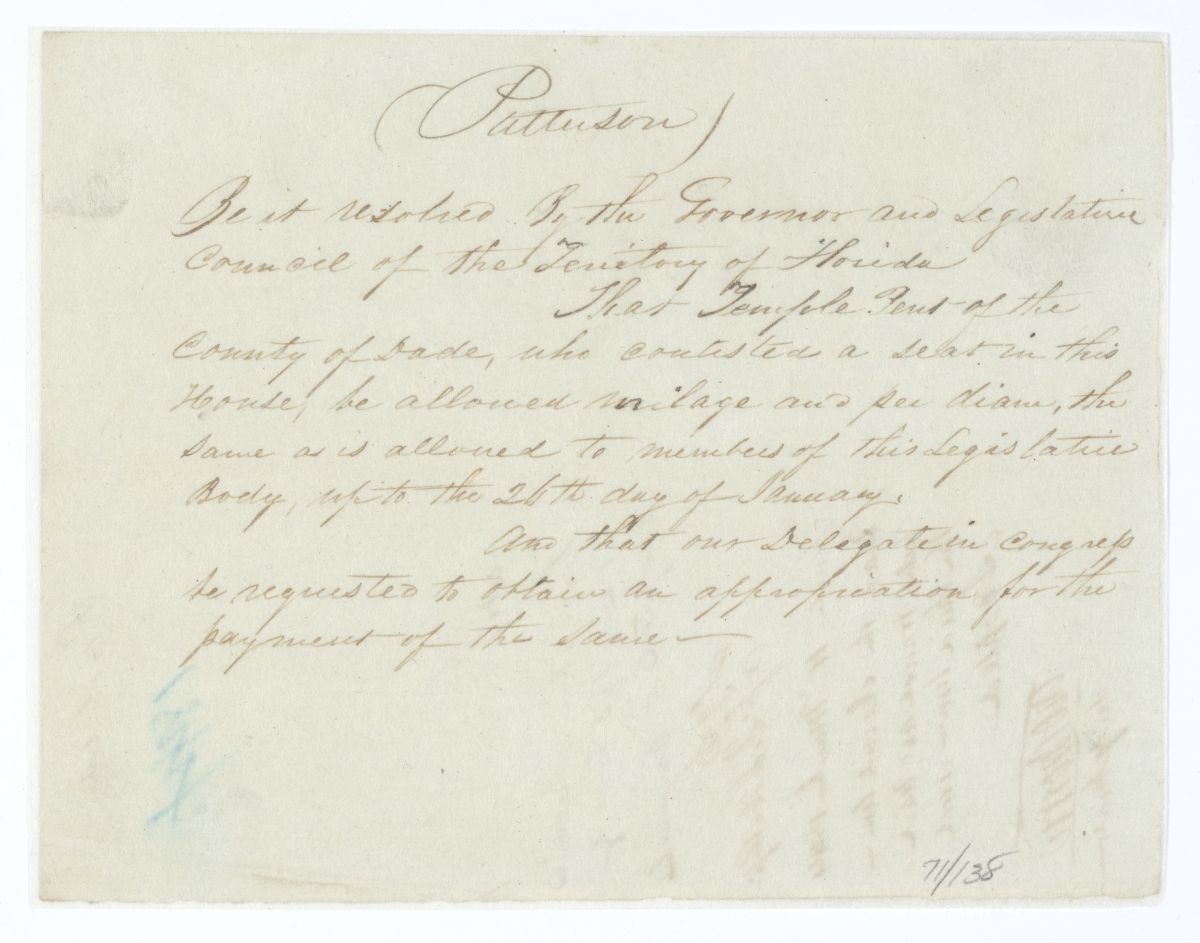 (Patterson)
Be it resolved By the Governor and Legislative
Council of the Territory of Florida
That Temple Pent of the
County of Dade, who contested a seat in this
House, be allowed milage and per diam, the
same as is allowed to members of this Legislative
Body, up to the 26th day of January.
And that our Delegate in Congress
be requested to obtain an appropriation for the
payment of the same —
71/138